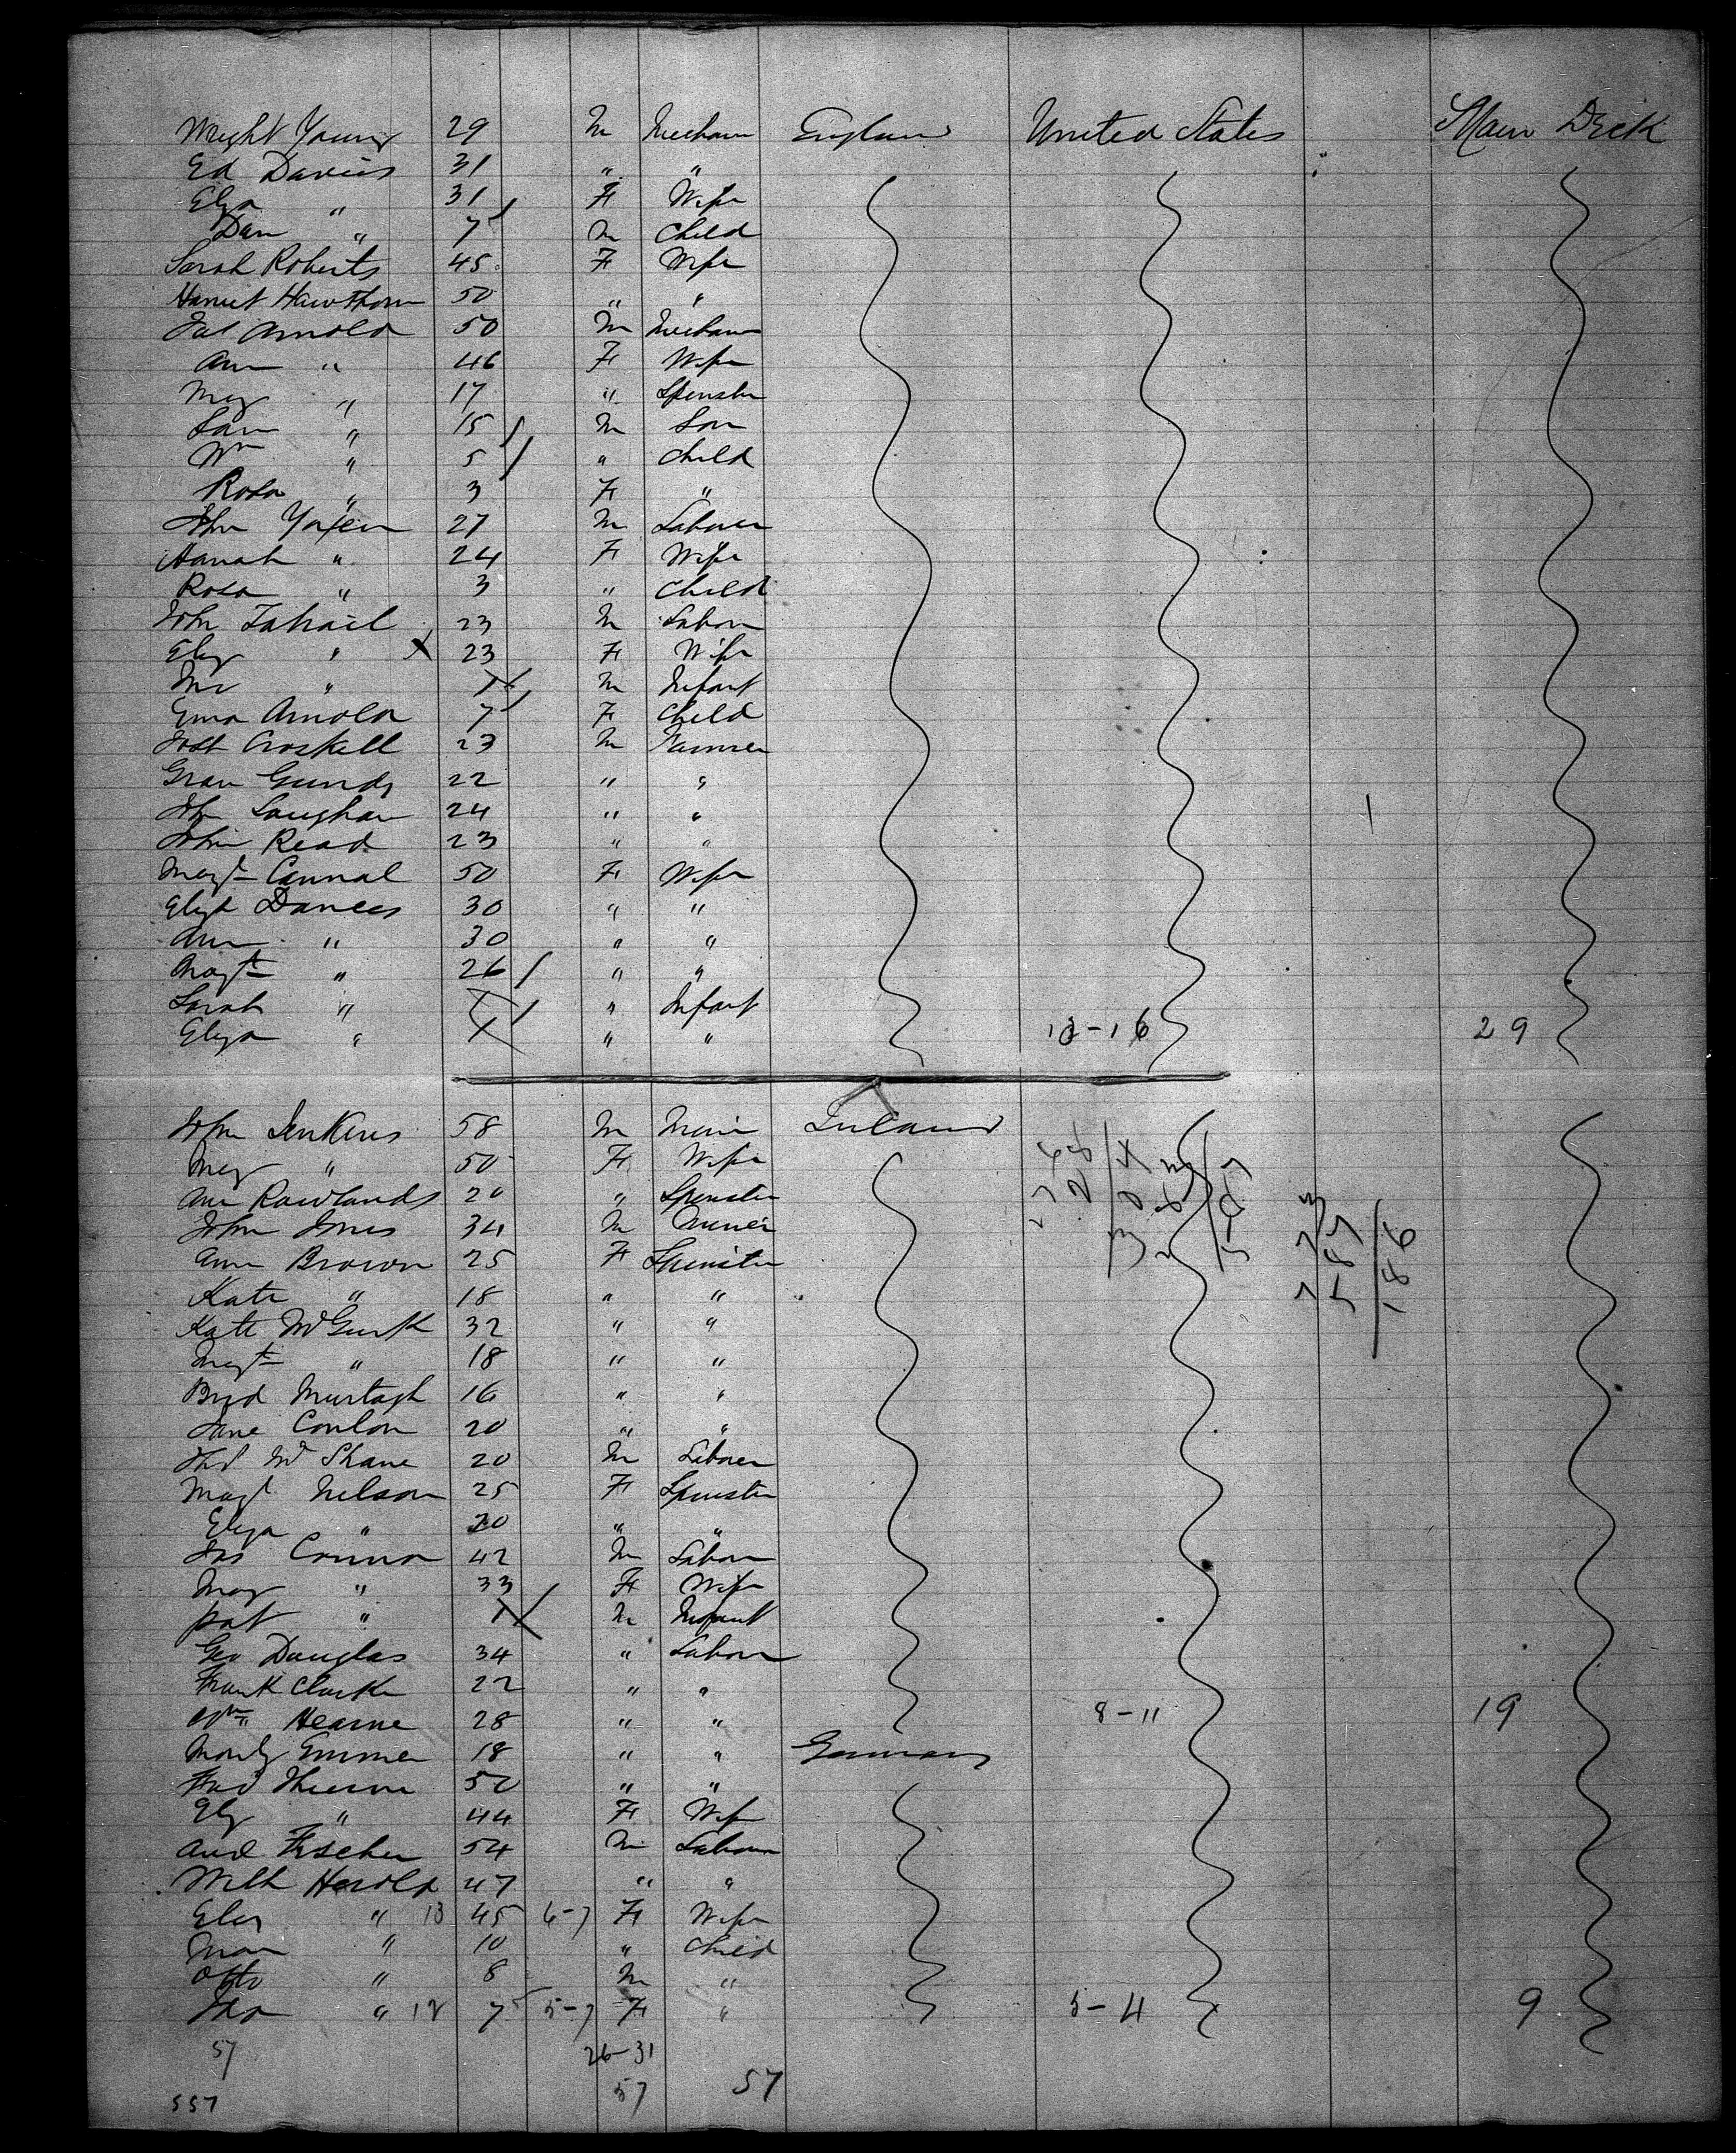 Wright Young 29 M Mechan England United States Main Deck
Ed Davies 31 " "
Elza " 31 F Wife
Dan " 7 M Child
Sarah Roberts 45 F Wife
Harriet Hawthorn 50 " "
Jas Arnold 50 M Mechan
Ann " 46 F Wife
Mary " 17 " Spinster
Sam " 15 M Son
Wm " 5 " Child
Rosa " 3 F "
John Yoxen 27 M Laborer
Hanah " 24 F Wife
Rosa " 3 " Child
John 23 M Labor
Eliz " 23 F Wife
" M Infant
Ema Arnold 7 F Child
Croskell 23 M Farmer
Gundy 22 " "
John Laughan 24 " " 1
John Read 23 " "
Margt Cannal 50 F Wife
Elizt Davies 30 " "
Ann " 30 " "
Margt " 26 " "
Sarah " " Infant
Eliza " " " 13-16 29
John Jenkins 58 M Ireland
Mary " 50 F Wife
Ann Rowlands 20 " Spinster
John Jones 34 M Miner
Ann Brown 25 F Spinster
Kate " 18 " "
Kate McGurk 32 " "
Margt " 18 " "
Brid Murtagh 16 " "
Jane Conlon 20 " "
Mc Shane 20 M Laborer
Magt Nelson 25 F Spinster
Eliza " 20 " "
Jas Connor 42 M Labor
Mary " 33 F Wife
Pat " 1 M Infant
Geo Douglas 34 " Labor
Frank Clarke 22 " "
Wm Hearne 28 " " 8-11 19
Emmer 18 " " Germany
" "
Elz " 44 F Wife
Aud Fischer 54 M Labour
Wilh Herold 47 " "
Eliz " 13 45 6-7 F Wife
" 10 " Child
Otto " 8 M "
Ida " 12 7 5-7 F " 5-4 9
57 26-31
57 57
557